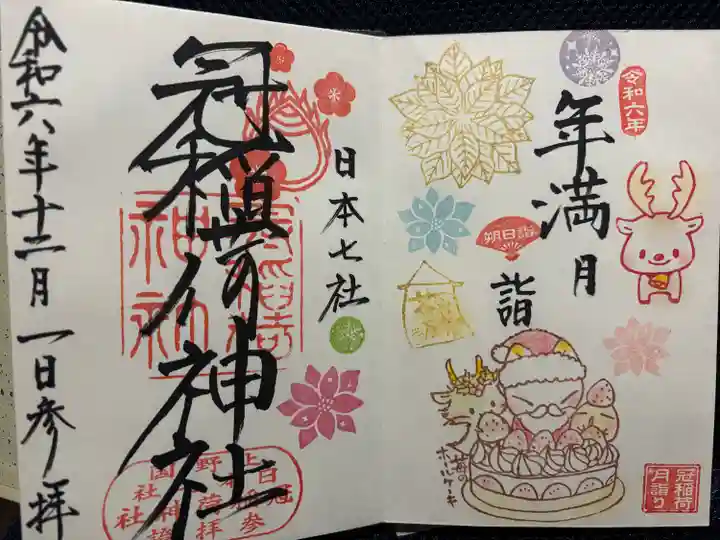 令和六年
年満月
朔日詣
詣
苺の
ホールケーキ
冠稲荷
月詣り
日本七社
冠稲荷神社
令和六年十二月一日参拝